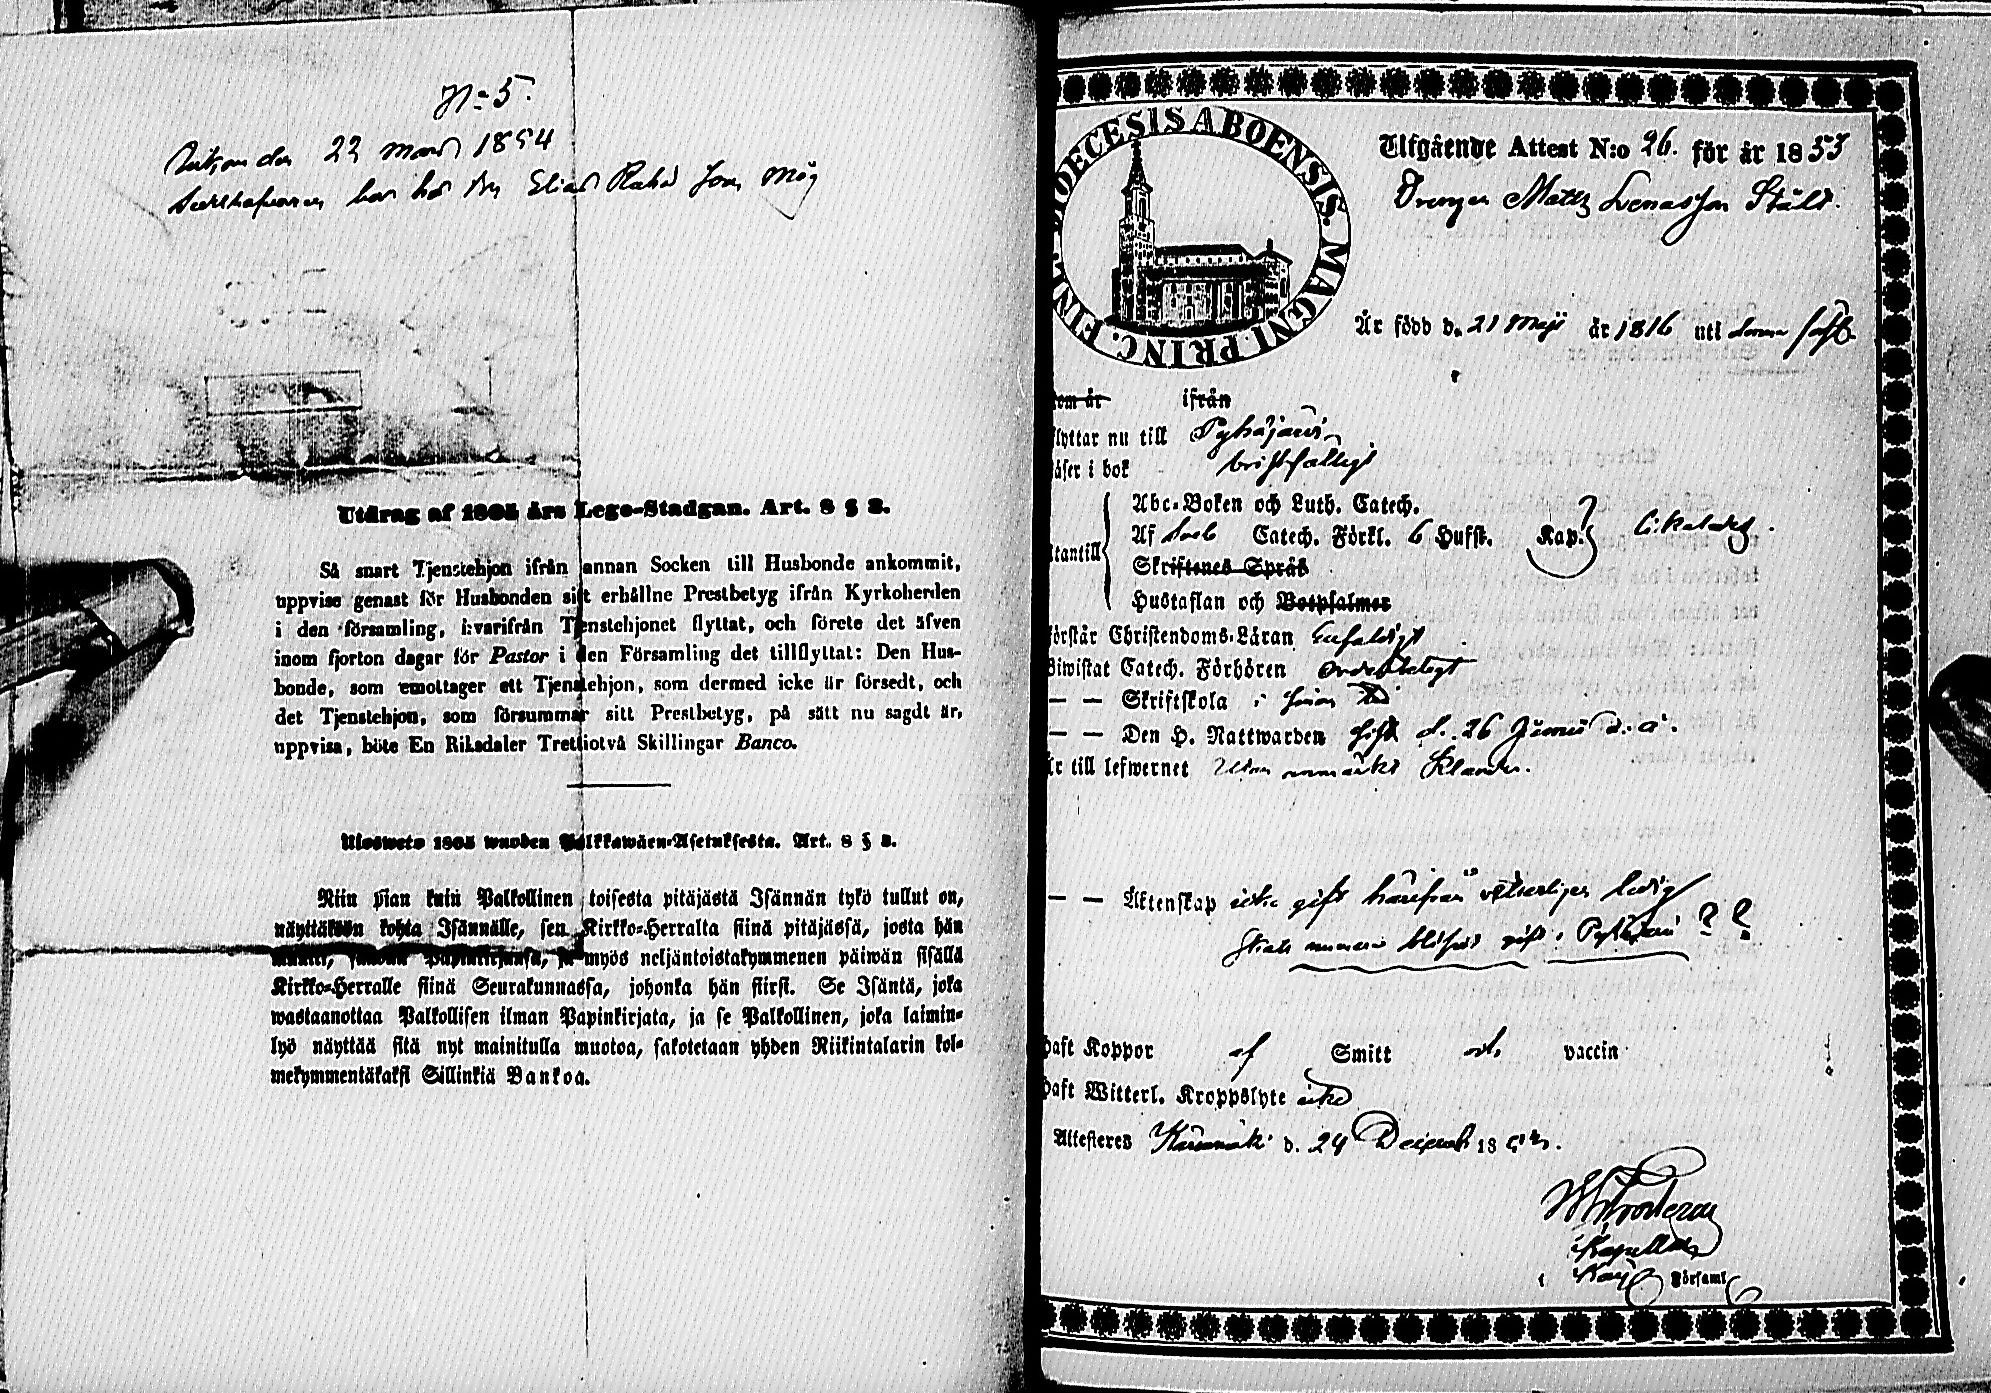 N:o 5.
den 22 mars 1854
har hos Elias
Utdrag af 1805 års Lego-Stadgan. Art. 8 § 2.
Så snart Tjenstehjon ifrån annan Socken till Husbonde ankommit,
uppvise genast för Husbonden sitt erhållne Prestbetyg ifrån Kyrkoherden
i den församling, hvarifrån Tjenstehjonet flyttat, och förete det äfven
inom fjorton dagar för Pastor i den Församling det tillflyttat: Den Hus-
bonde, som emottager ett Tjenstehjon, som dermed icke är försedt, och
det Tjenstehjon, som försummar sitt Prestbetyg, på sätt nu sagdt är,
uppvisa, böte En Riksdaler Trettiotvå Skillingar Banco.
Ulosweto 1805 wuoden Palkkawäen-Asetuksesta. Art. 8 § 2.
Niin pian kuin Palkollinen toisesta pitäjästä Isännän tykö tullut on,
näyttäkään kohta Isännälle, sen Kirkko-Herralta siinä pitäjässä, josta hän
myös neljäntoistakymmenen päiwän sisällä
Kirkko-Herralle siinä Seurakunnassa, johonka hän siirsi. Se Isäntä, joka
wastaanottaa Palkollisen ilman Papinkirjata, ja se Palkollinen, joka laimin-
lyö näyttää sitä nyt mainitulla muotoa, sakotetaan yhden Riikintalarin kol-
mekymmentäkaksi Sillinkiä Bankoa.
DIOECESIS ABOENSIS. MAGNI. PRINC. FINL.
Utgående Attest N:o 26. för år 1853
Drengen Matts Stålt.
Är född d. 21 Maji år 1816 uti denna
som är ifrån
flyttar nu till Pyhäjärvi
läser i bok bristfälligt
Abc-Boken och Luth. Catech.
Af Sveb Catech. Förkl. 6 Hufst. Kap.
utantill
Skriftenes Språk
Hustaflan och Botpsalmer
Förstår Christendoms-Läran Enfaldigt
Biwistat Catech. Förhören ordentligt
— — Skriftskola i
— — Den H. Nattwarden sist d. 26 Junii d. å.
Är till lefwernet Utan anmärkt Klander.
— — Äktenskap icke gift härifrån ledig
gift i
Haft Koppor af Smitt och vaccin
Haft Witterl. Kroppslyte icke
Attesteres d. 24 Decemb 18
Kapellan
Församl